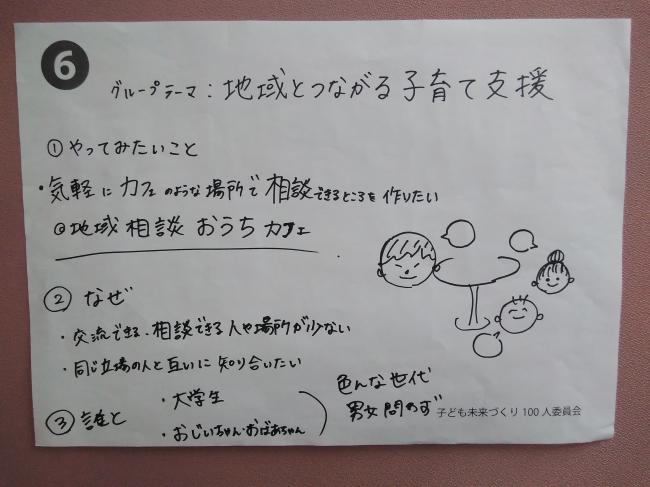 6
グループテーマ：地域とつながる子育て支援
①やってみたいこと
・気軽にカフェのような場所で相談できるところを作りたい
地域相談おうちカフェ
②なぜ
・交流できる、相談できる人や場所が少ない
・同じ立場の人と互いに知り合いたい
③誰と
・大学生
・おじいちゃん・おばあちゃん
色んな世代
男女問わず
子ども未来づくり100人委員会